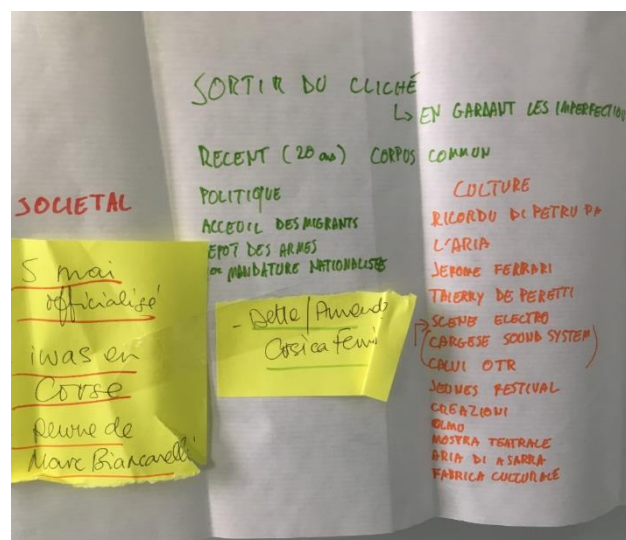 SORTIR DU CLICHÉ
↳ EN GARDANT LES IMPERFECTION
RECENT (20 ans) CORPUS COMMUN
SOCIETAL
5 mai
officialisé
iwas en
Corse
Revue de
Marc Biancarelli
POLITIQUE
ACCEUIL DES MIGRANTS
EPOT DES ARMES
MANDATURE NATIONALISTE
- Dette/Amende
Cosica Femi
CULTURE
RICORDU DI PETRU PA
L'ARIA
JEROME FERRARI
THIERRY DE PERETTI
SCENE ELECTRO
(CARGESE SOUND SYSTEM)
CALVI OTR
JEUNES FESTIVAL
CREAZIONI
OLMO
MOSTRA TEATRALE
ARIA DI A SARRA
FABRICA CULTURALE